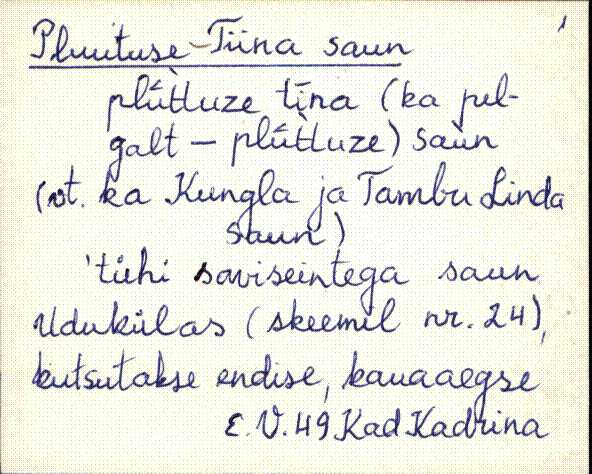 Pluituse-Tiina saun
plǘìt̀luze tīna (ka pel-
galt – plǘìt̀luze) saùn
(vt. ka Kungla ja Tambu Linda
saun)
'tühi saviseintega saun
Udukülas (skeemil nr. 24),
kutsutakse endise, kauaaegse
E.V.49 Kad Kadrina